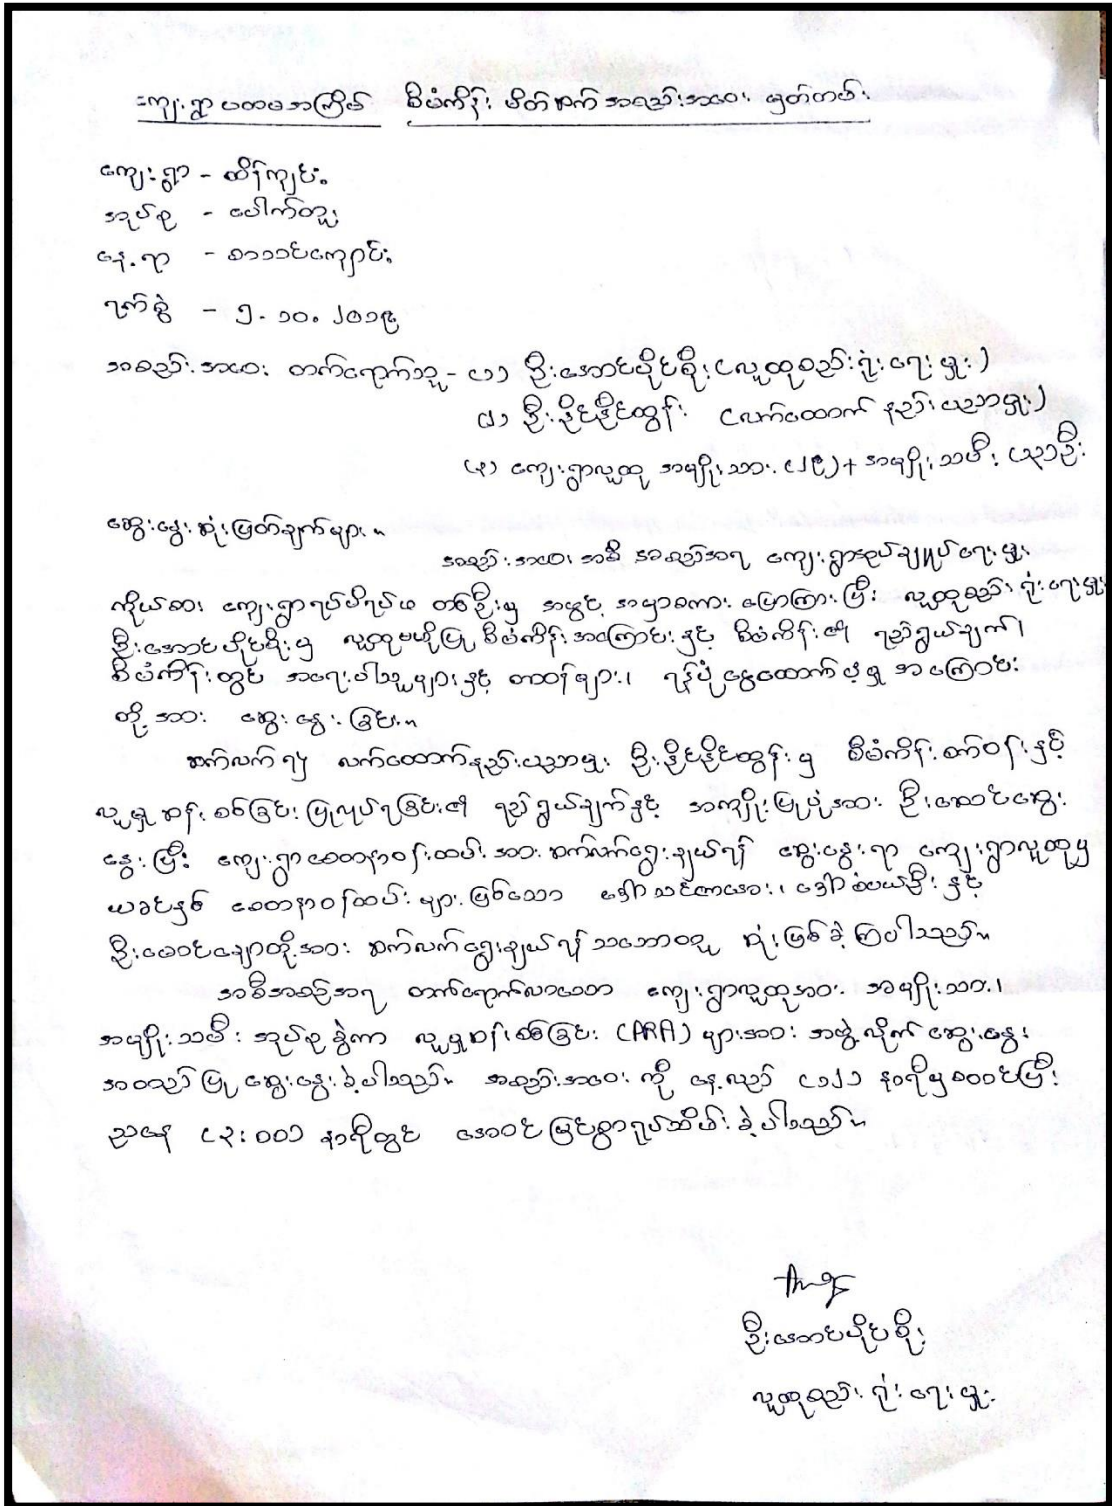 ကျေးရွာပထမအကြိမ် စီမံကိန်းမိတ်ဆက်အစည်းအဝေး မှတ်တမ်း
ကျေးရွာ - ထိန်ကျင်း
အုပ်စု - ပေါက်တူး
နေ့ရာ - စာသင်ကျောင်း
ရက်စွဲ - ၅.၁၀.၂၀၁၉
အစည်းအဝေး တက်ရောက်သူ - (၁) ဦးအောင်ပိုင်စိုး (လူထုစည်းရုံးရေးမှူး)
(၂) ဦးဒိုင်ဒိုင်ထွန်း (လက်ထောက် နည်းပညာမှူး)
(၃) ကျေးရွာလူထု အမျိုးသား (၂၉) + အမျိုးသမီး
ဆွေးနွေးဆုံးဖြတ်ချက်များ။
အစည်းအဝေး အစီအစဉ်အရ ကျေးရွာအုပ်ချုပ်ရေးမှူး
ကိုယ်စား ကျေးရွာရပ်မိရပ်ဖ တစ်ဦးမှ အဖွင့်အမှာစကား ပြောကြားပြီး လူထုစည်းရုံးရေးမှူး
ဦးအောင်ပိုင်စိုးမှ လူထုဗဟိုပြု စီမံကိန်းအကြောင်းနှင့် စီမံကိန်း၏ ရည်ရွယ်ချက်၊
စီမံကိန်းတွင် အရေးပါသူများနှင့် တာဝန်များ၊ ရန်ပုံငွေထောက်ပံ့မှု အကြောင်း
တို့အား ဆွေးနွေးခြင်း။
ဆက်လက်၍ လက်ထောက်နည်းပညာမှူး ဦးဒိုင်ဒိုင်ထွန်းမှ စီမံကိန်းစက်ဝန်းနှင့်
လူမှုဆန်းစစ်ခြင်း ပြုလုပ်ရခြင်း၏ ရည်ရွယ်ချက်နှင့် အကျိုးပြုပုံအား ဦးဆောင်ဆွေး
နွေးပြီး ကျေးရွာစေတနာ့ဝန်ထမ်းအား ဆက်လက်ရွေးချယ်ရန် ဆွေးနွေးရာ ကျေးရွာလူထုမှ
ယခင်နှစ် စေတနာ့ဝန်ထမ်းများဖြစ်သော ဒေါ်သင်္ကာအေး၊ ဒေါ်စံပယ်ဦး နှင့်
ဦးမောင်ချောတို့အား ဆက်လက်ရွေးချယ်ရန် သဘောတူ ဆုံးဖြစ်ခဲ့ကြပါသည်။
အစီအစဉ်အရ တက်ရောက်လာသော ကျေးရွာလူထုအား အမျိုးသား၊
အမျိုးသမီး အုပ်စုခွဲကာ လူမှုဆန်းစစ်ခြင်း (PRA) များအား အဖွဲ့လိုက် ဆွေးနွေး
အတည်ပြု ဆွေးနွေးခဲ့ပါသည်။ အစည်းအဝေးကို နေ့လည် (၁၂) နာရီမှစတင်ပြီး
ညနေ (၃:၀၀) နာရီတွင် အောင်မြင်စွာရုပ်သိမ်းခဲ့ပါသည်။
ဦးအောင်ပိုင်စိုး
လူထုစည်းရုံးရေးမှူး